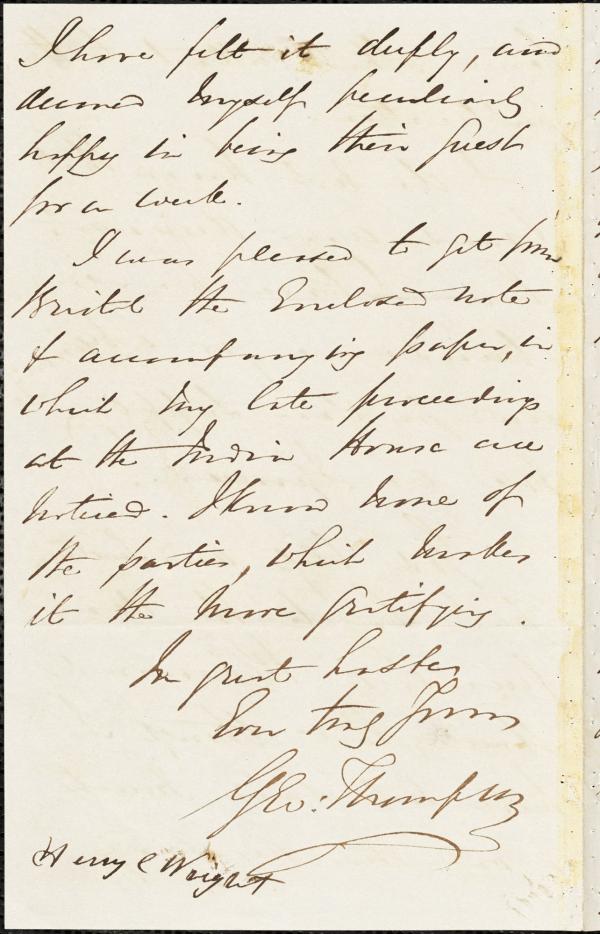 I have felt it deeply, and
deemed myself peculiarly
happy in being their guest
for a week.
I was pleased to get from
Bristol the Enclosed note
& accompanying paper, in
which my late proceedings
at the India House are
noticed. I know none of
the parties, which makes
it the more gratifying.
In great haste
Ever truly Yours
Geo: Thompson
Henry C Wright